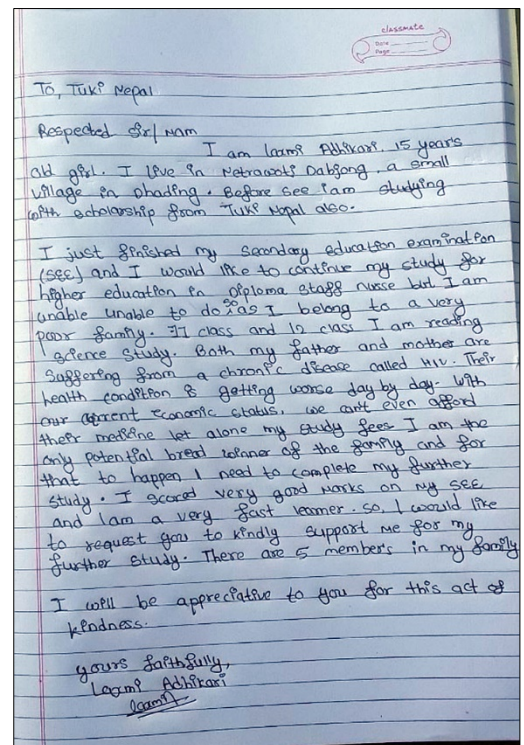 classmate
Date
Page
To, Tuki Nepal
Respected Sir/Mam
I am laxmi Adhikari. 15 year's
old girl. I live in Netrawoti Dabjong, a small
village in Dhading. Before See iam studying
with scholarship from Tuki Nepal also.
I just finished my Secondary education examination
(SEE) and I would like to continue my study for
higher education in Diploma staff nurse but I am
unable unable to do so as I belong to a very
poor family. 11 class and 12 class I am reading
science study. Both my father and mother are
suffering from a chronic disease called HIV. Their
health condition is getting worse day by day. With
our current Economic status, we can't even afford
their medicine let alone my study fees I am the
only potential bread winner of the family and for
that to happen I need to complete my further
study. I scored very good marks on my SEE
and I am a very fast learner. so, I would like
to request you to kindly support me for my
further study. There are 5 member's in my family
I will be appreciative to you for this act of
kindness.
yours faithfully,
Laxmi Adhikari
laxmi